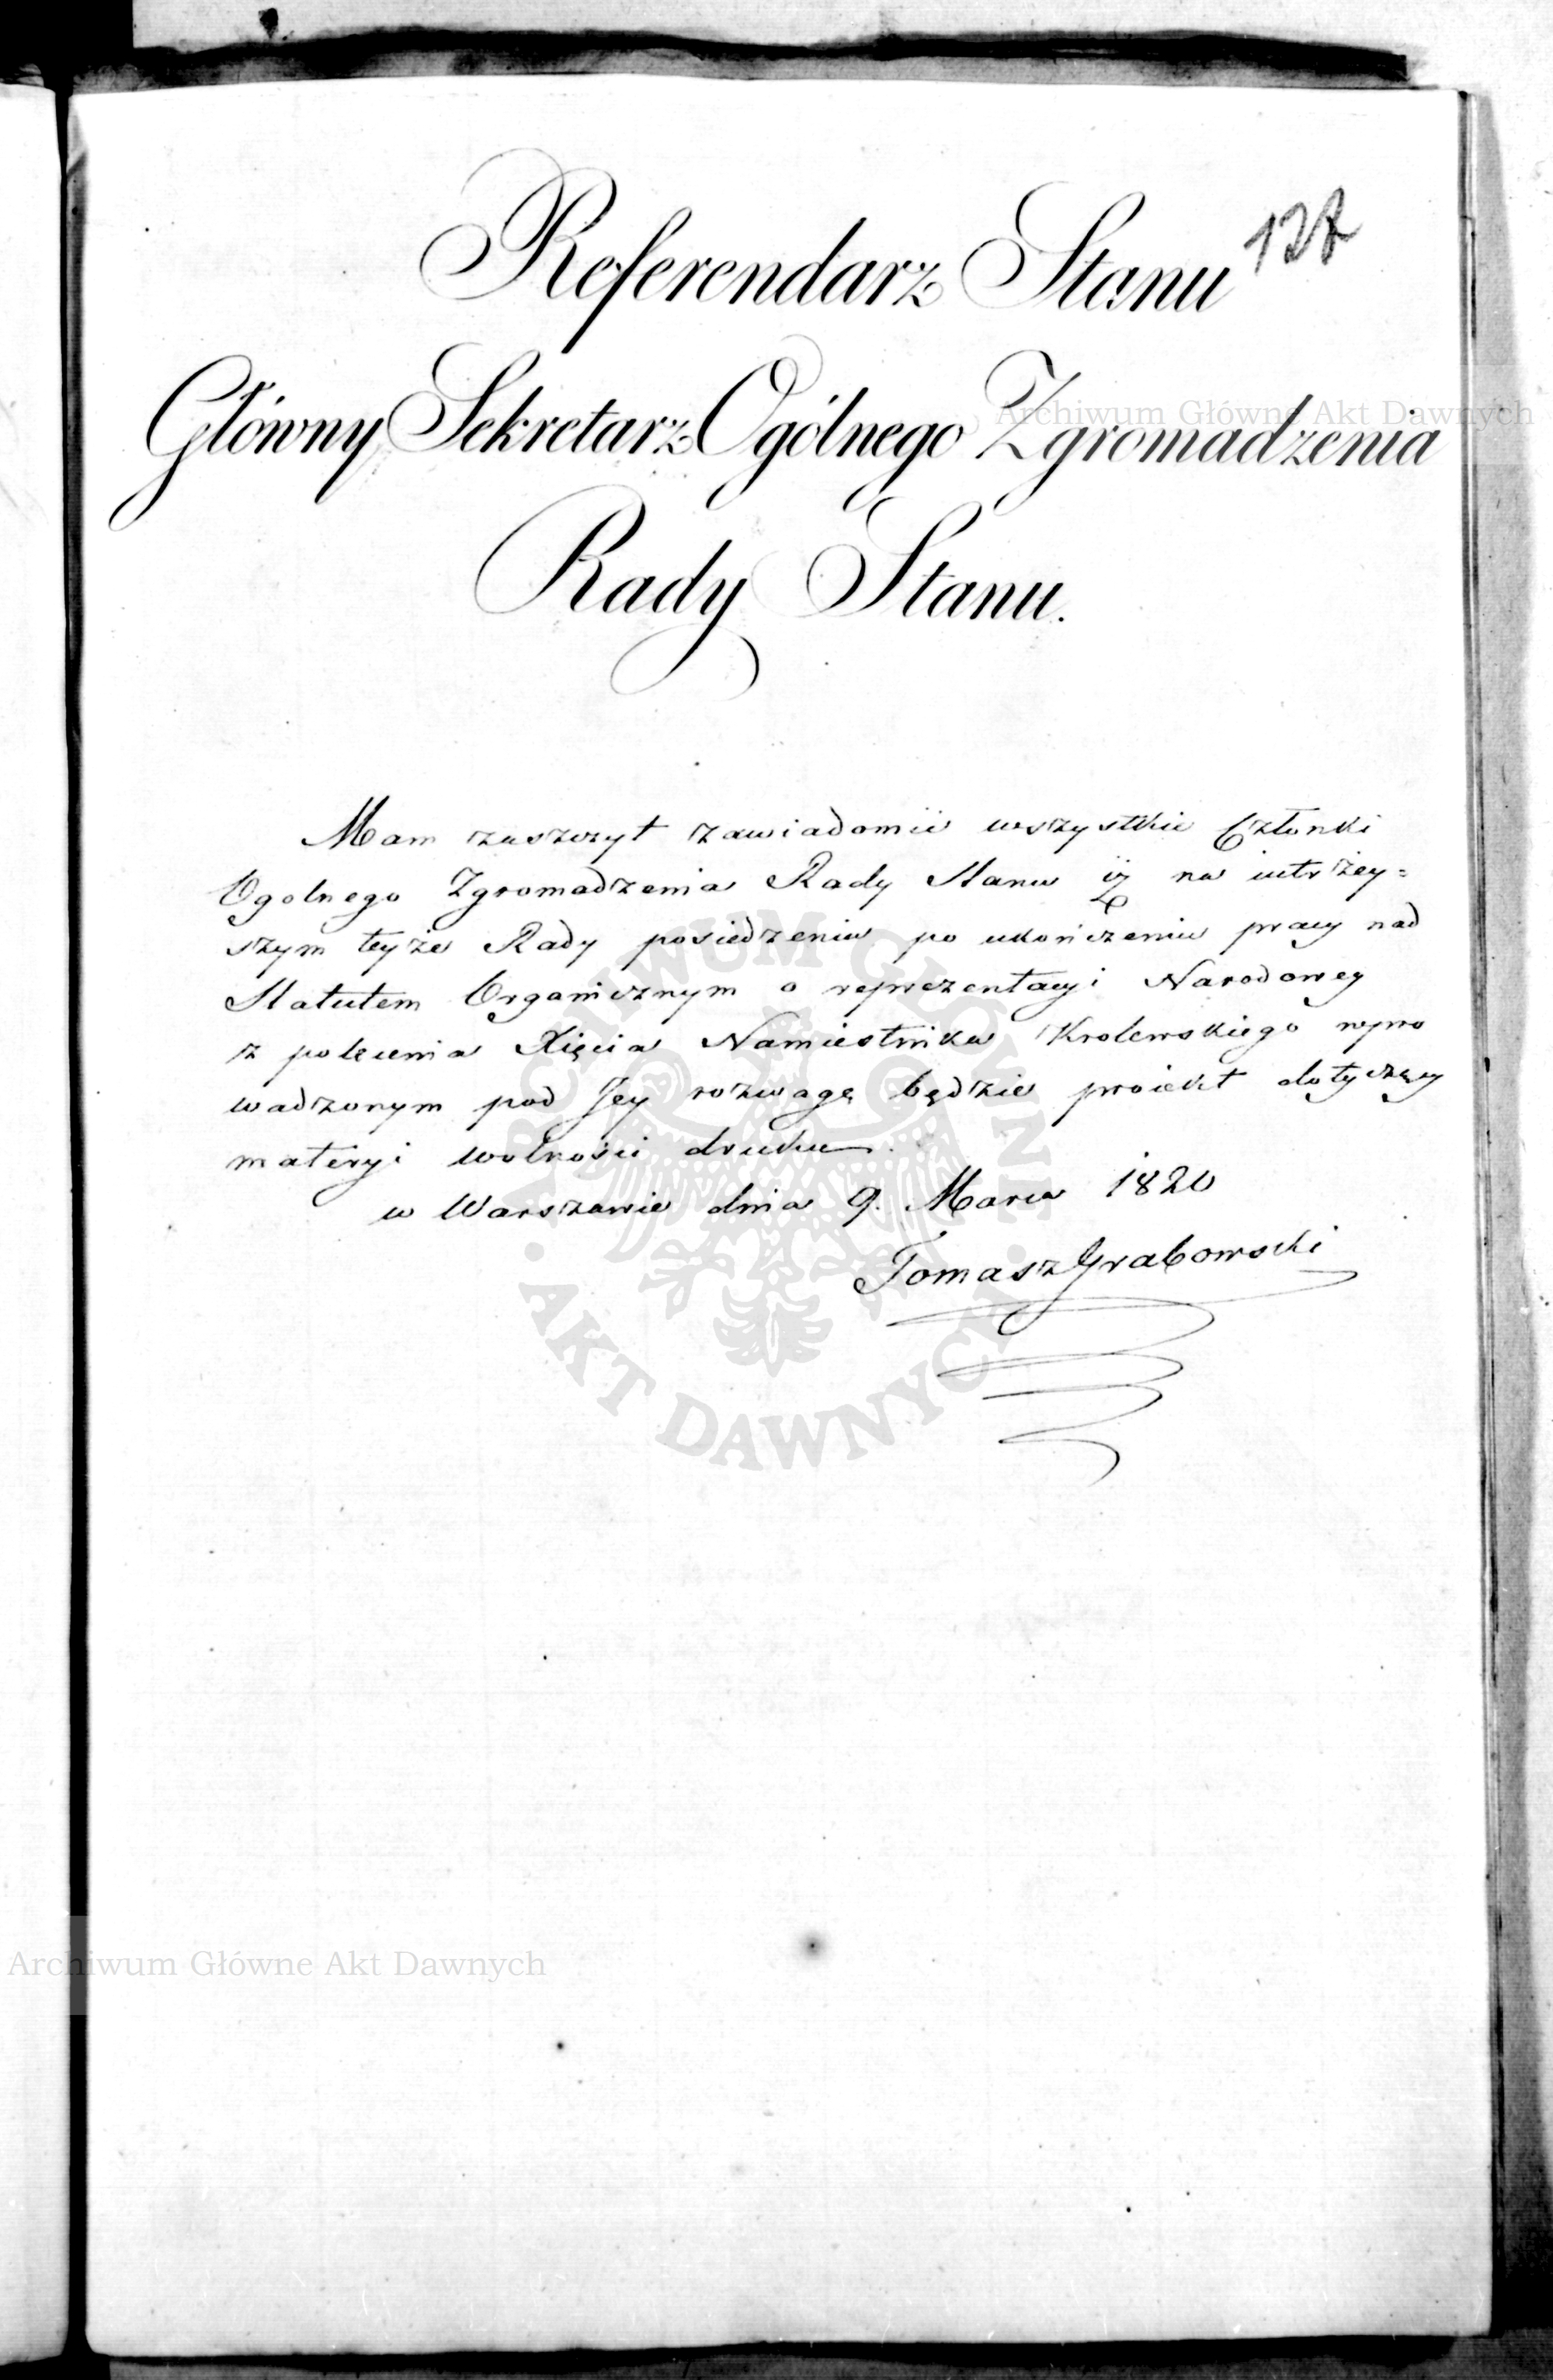 127
Referendarz Stanu
Główny Sekretarz Ogólnego Zgromadzenia
Rady Stanu.
Mam zaszczyt zawiadomić wszystkie Członki
Ogolnego Zgromadzenia Rady Stanu iż na iutrzey=
szym teyże Rady posiedzeniu po ukończeniu pracy nad
Statutem Organicznym o reprezentacyi Narodowey
z polecenia Xięcia Namiestnika Krolewskiego wpro
wadzonym pod Jey rozwagę będzie proiekt dotyczący
materyi wolności druku.
w Warszawie dnia 9. Marca 1820
Tomasz Grabowski
Archiwum Główne Akt Dawnych
ARCHIWUM GŁÓWNE
· AKT DAWNYCH ·
Archiwum Główne Akt Dawnych